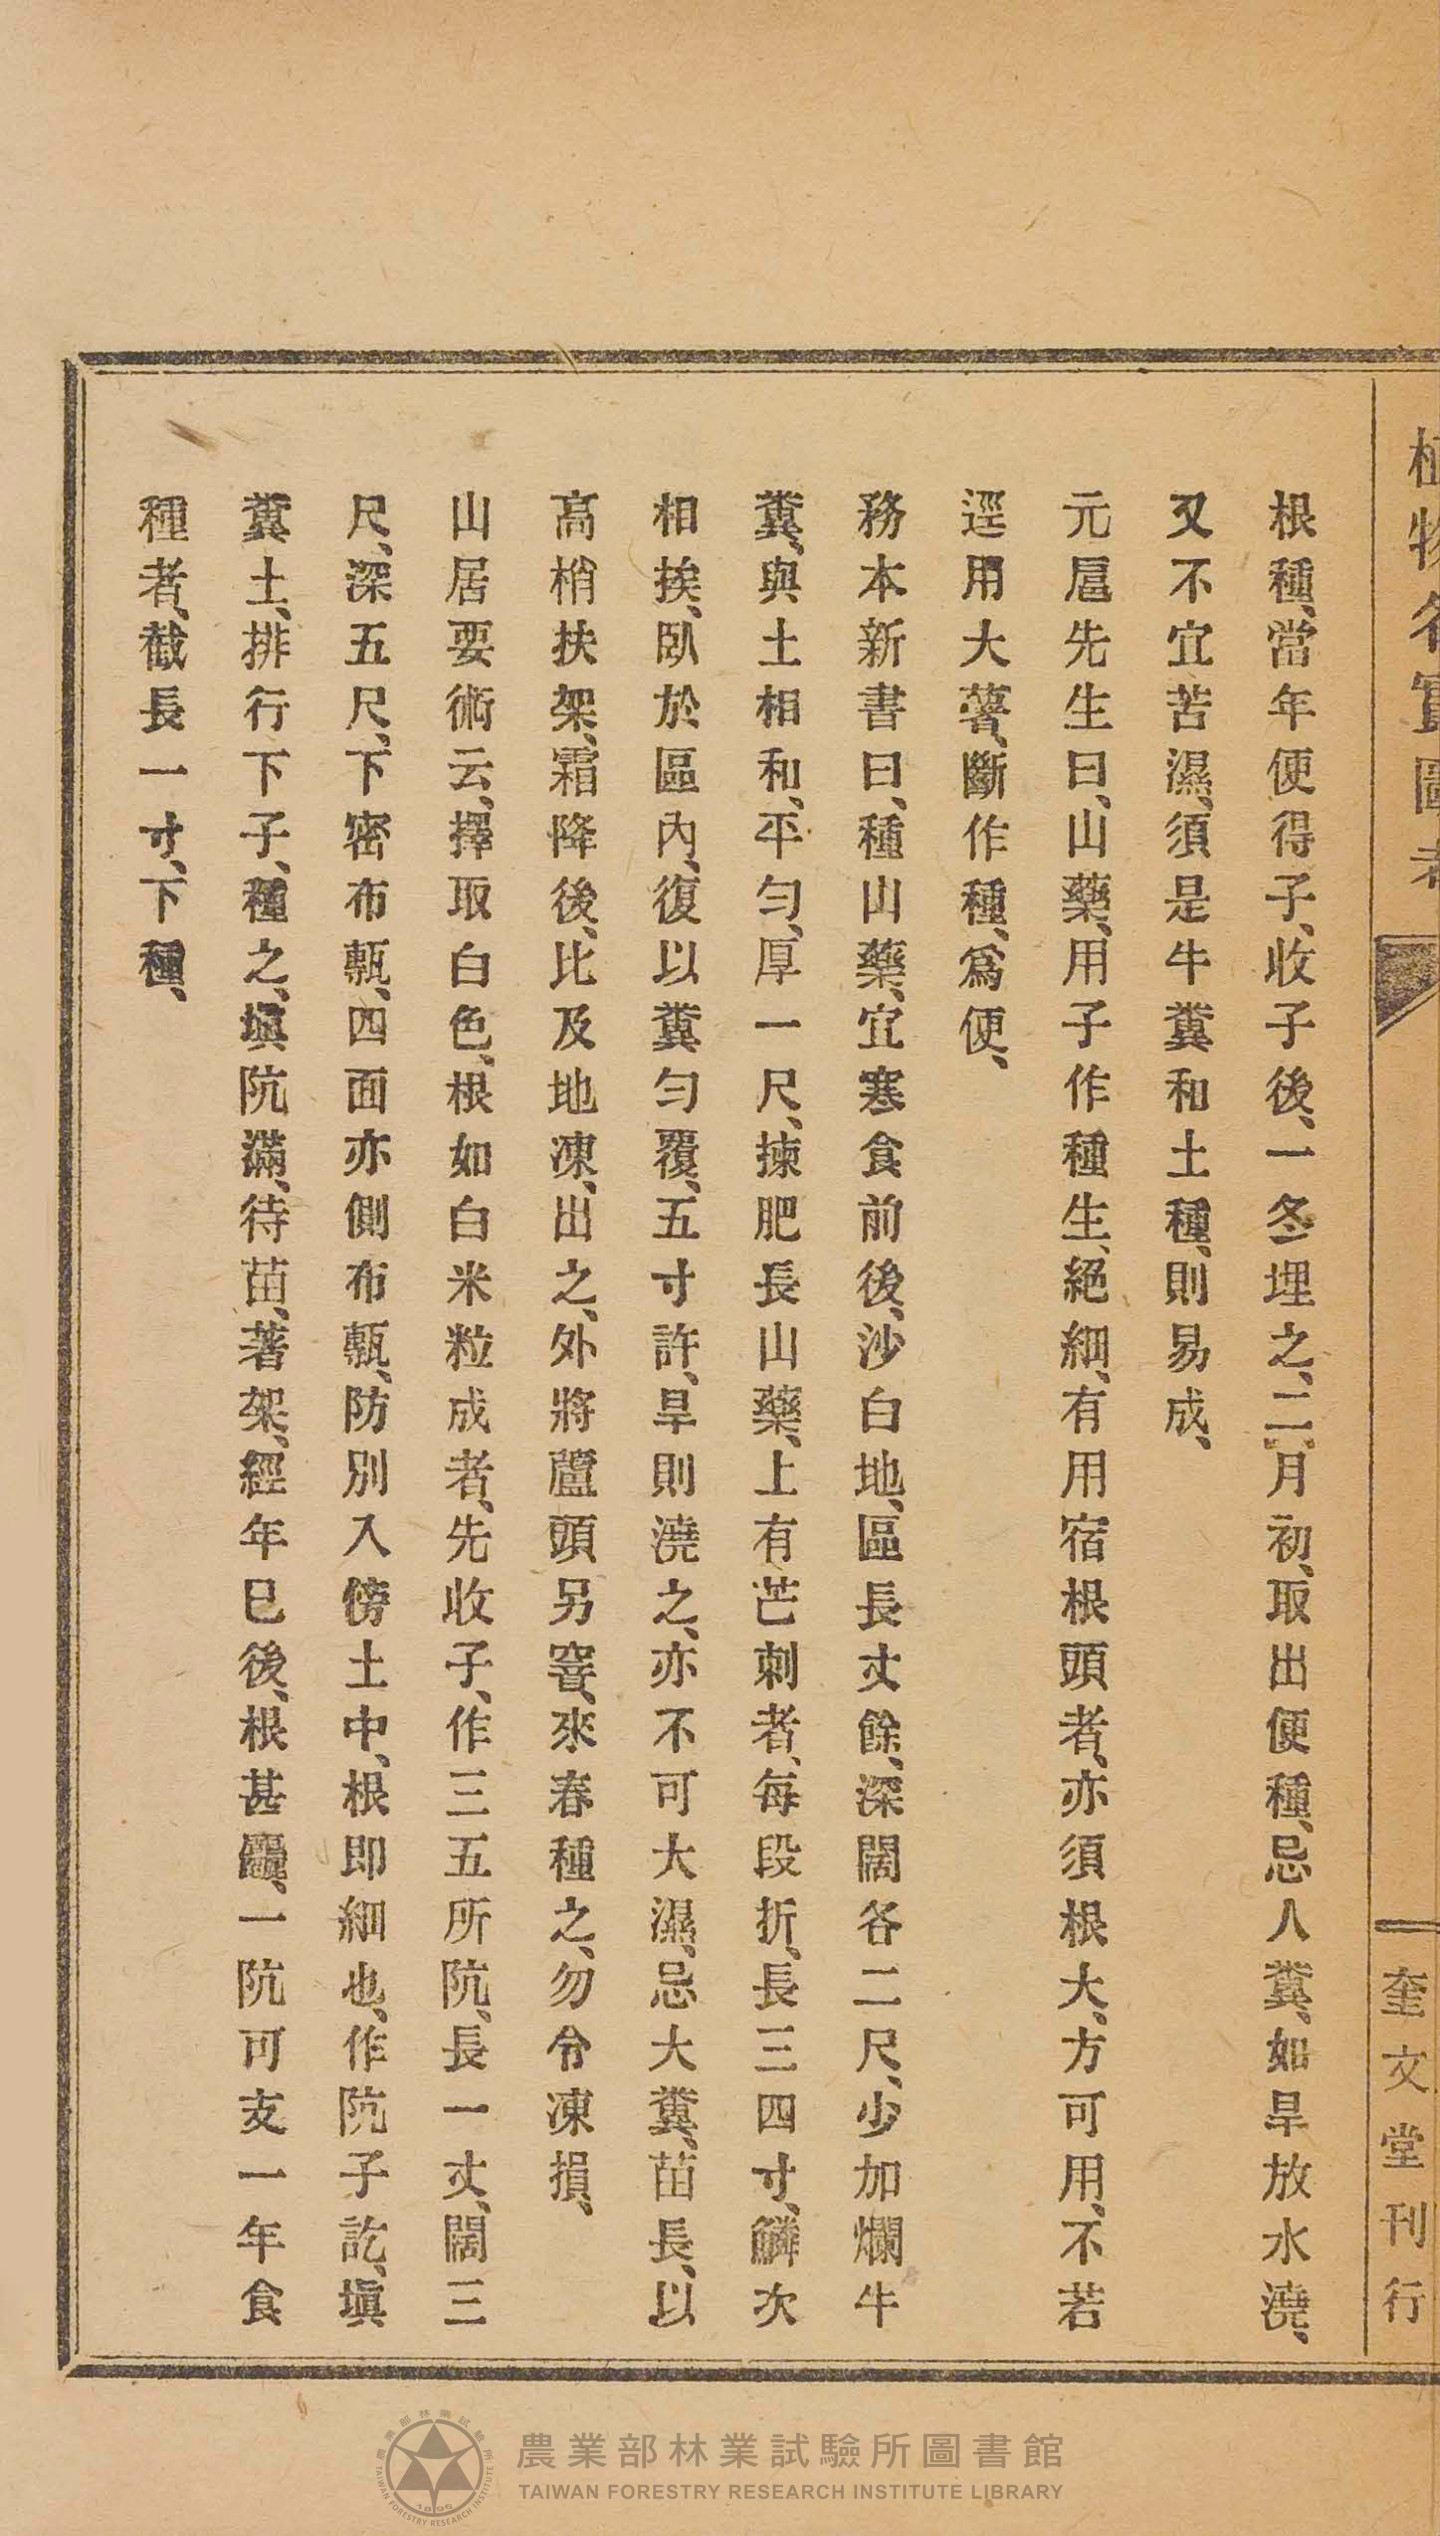 植物名實圖考
奎文堂刊行
根種、當年便得子、收子後、一冬埋之、二月初、取出便種、忌人糞、如旱放水澆、
又不宜苦濕、須是牛糞和土種、則易成、
元扈先生曰、山藥、用子作種生、絕細、有用宿根頭者、亦須根大、方可用、不若
逕用大薯、斷作種、爲便、
務本新書曰、種山藥、宜寒食前後、沙白地、區長丈餘、深闊各二尺、少加爛牛
糞、與土相和、平勻、厚一尺、揀肥長山藥、上有芒刺者、每段折、長三四寸、鱗次
相挨、臥於區內、復以糞勻覆、五寸許、旱則澆之、亦不可大濕、忌大糞、苗長、以
高梢扶架、霜降後、比及地凍、出之、外將蘆頭另窖、來春種之、勿令凍損、
山居要術云、擇取白色、根如白米粒成者、先收子、作三五所阬、長一丈、闊三
尺、深五尺、下密布甎、四面亦側布甎、防別入傍土中、根即細也、作阬子訖、塡
糞土、排行下子、種之、塡阬滿、待苗、著架、經年已後、根甚麤、一阬可支一年食
種者、截長一寸、下種、
農業部林業試驗所圖書館
TAIWAN FORESTRY RESEARCH INSTITUTE LIBRARY
農業部林業試驗所
TAIWAN FORESTRY RESEARCH INSTITUTE
1896